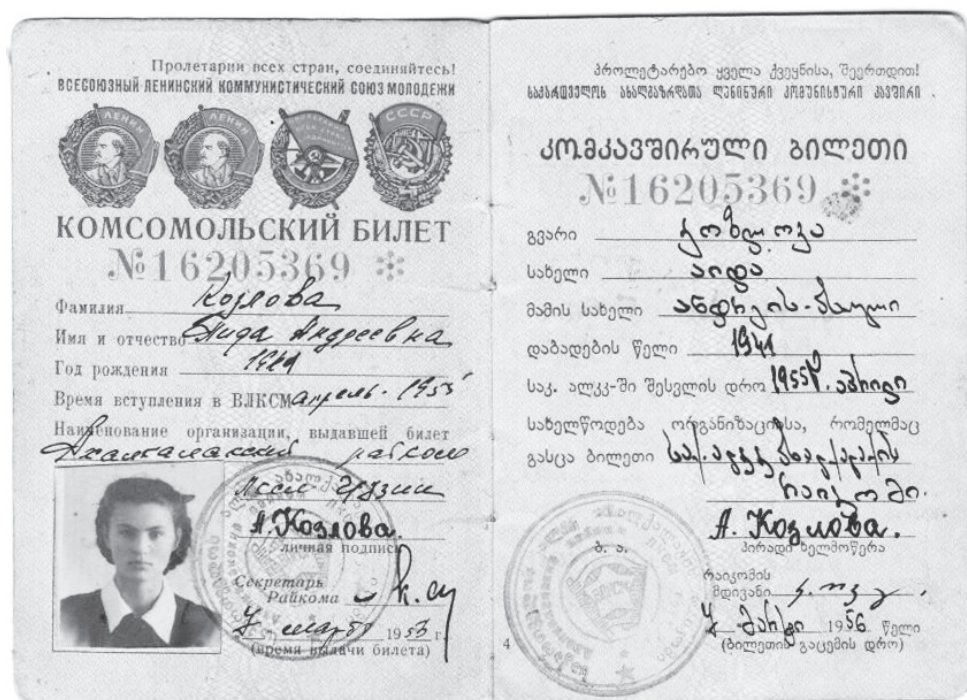 Пролетарии всех стран, соединяйтесь!
ВСЕСОЮЗНЫЙ ЛЕНИНСКИЙ КОММУНИСТИЧЕСКИЙ СОЮЗ МОЛОДЕЖИ
ЛЕНИН
ЛЕНИН
СССР
КОМСОМОЛЬСКИЙ БИЛЕТ
№16205369
Фамилия Козлова
Имя и отчество Аида Андреевна
Год рождения 1941
Время вступления в ВЛКСМ апрель. 1955
Наименование организации, выдавшей билет
Ахалкалакский райком
ЛКСМ Грузии
А. Козлова.
личная подпись
Секретарь
Райкома
7 марта 1956 г.
(время выдачи билета)
პროლეტარებო ყველა ქვეყნისა, შეერთდით!
საქართველოს ახალგაზრდათა ლენინური კომუნისტური კავშირი
კომკავშირული ბილეთი
№16205369
გვარი კოზლოვა
სახელი აიდა
მამის სახელი ანდრეის-ასული
დაბადების წელი 1941
საქ. ალკკ-ში შესვლის დრო 1955 წ. აპრილი
სახელწოდება ორგანიზაციისა, რომელმაც
გასცა ბილეთი საქ. ალკკ ახალქალაქის
რაიკომი.
А. Козлова.
ბ. ა.
პირადი ხელმოწერა
რაიკომის
მდივანი
7 მარტი 1956 წელი
(ბილეთის გაცემის დრო)
4